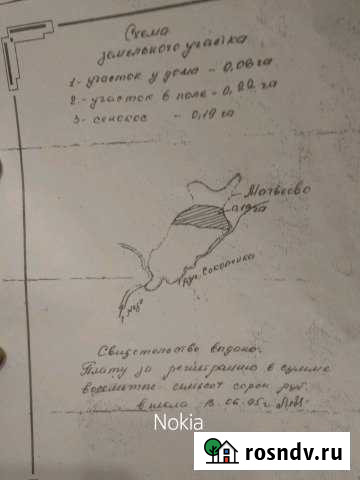 Схема
земельного участка
1 - участок у дома - 0,08 га
2 - участок в поле - 0,22 га
3 - сенокос - 0,19 га
Матвеево
0,19 га
руч.
Свидетельство выдано.
Плату за регистрацию в сумме
семьсот сорок руб.
внесла
Nokia
rosndv.ru